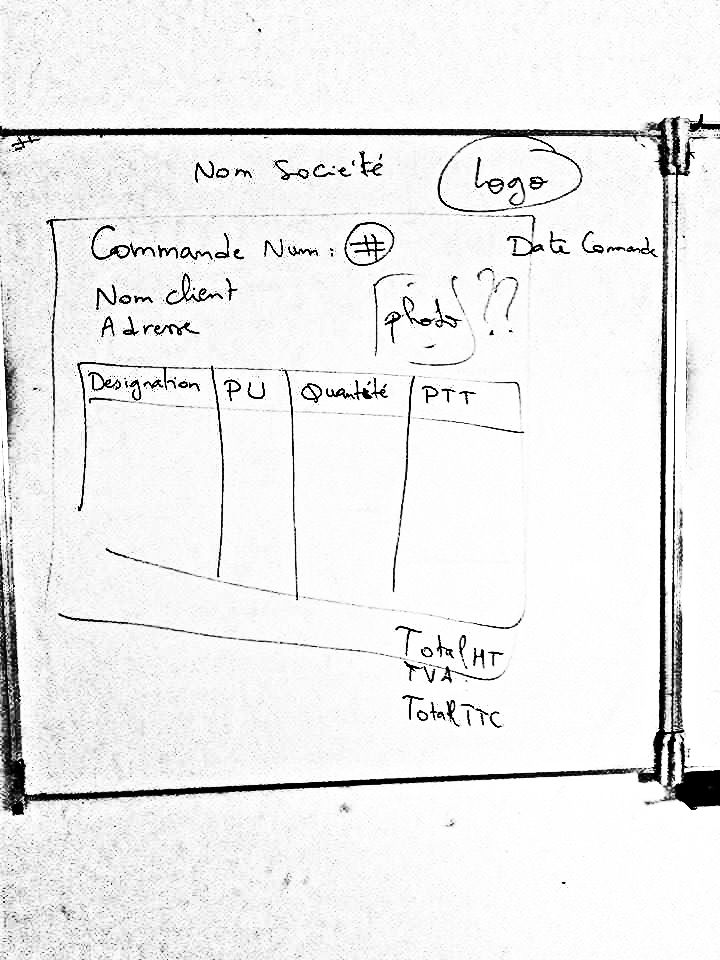 Nom Société Logo
Commande Num : # Date Commande
Nom client
Adresse
photo ??
Designation PU Quantité PTT
Total HT
TVA
Total TTC